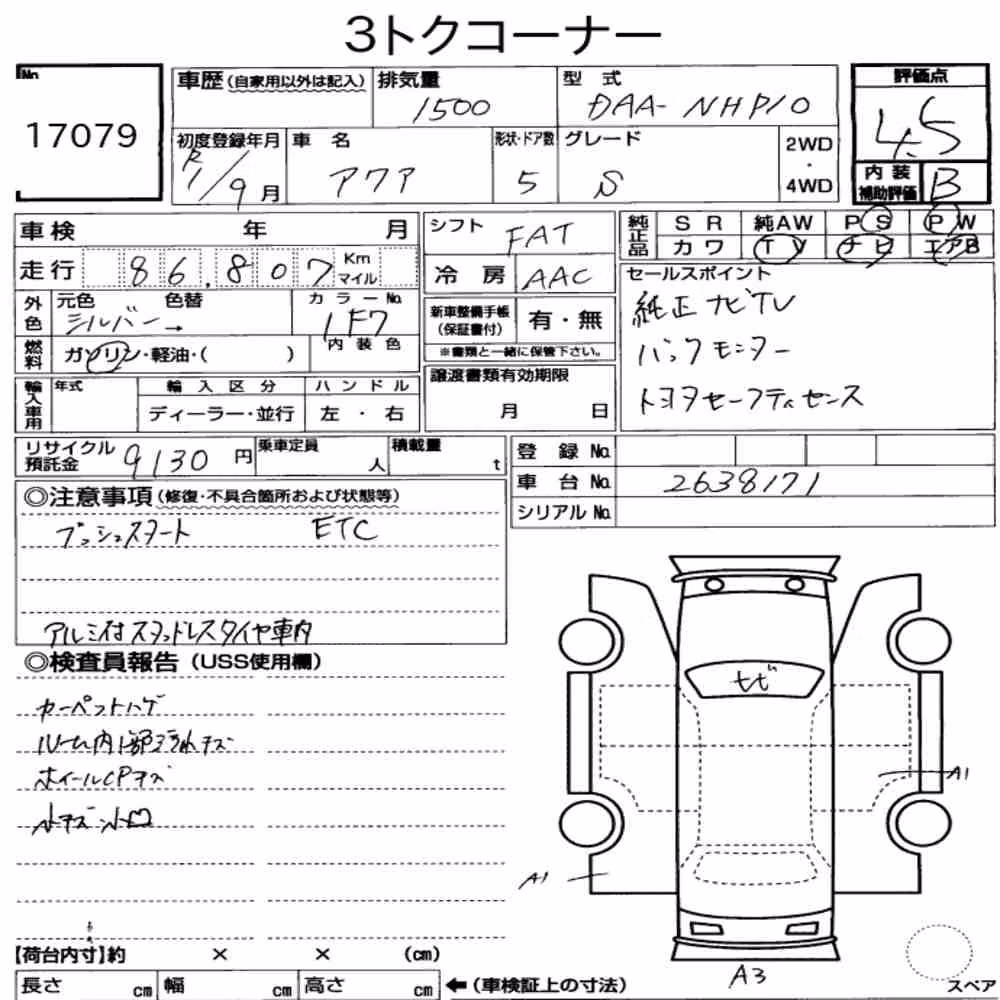 3トクコーナー
No. 17079
車歴 (自家用以外は記入) 排気量 1500 型式 DAA-NHP10 評価点 4.5
初度登録年月 R1/9月 車名 アクア 形状・ドア数 5 グレード S 2WD・4WD 内装補助評価 B
車検 年 月 シフト FAT 純正品 SR 純AW PS PW
カワ TV ナビ エアB
走行 86,807 Km マイル 冷房 AAC セールスポイント
外色 元色 シルバー→ 色替 カラーNo. 1F7 新車整備手帳 (保証書付) 有・無 純正ナビTV
燃料 ガソリン・軽油・( ) 内装色 ※書類と一緒に保管下さい。 バックモニター
輸入車用 年式 輸入区分 ハンドル 譲渡書類有効期限 トヨタセーフティセンス
ディーラー・並行 左・右 月 日
リサイクル預託金 9130円 乗車定員 人 積載量 t 登録No.
車台No. 2638171
シリアルNo.
◎注意事項 (修復・不具合箇所および状態等)
プッシュスタート ETC
アルミ付スタッドレスタイヤ車内
◎検査員報告 (USS使用欄)
カーペットハゲ
ルーム内
ホイールCPキズ
小キズ小凹
トビ
A1
A1
A3
【荷台内寸】約 × × (cm)
長さ cm 幅 cm 高さ cm ←(車検証上の寸法) スペア